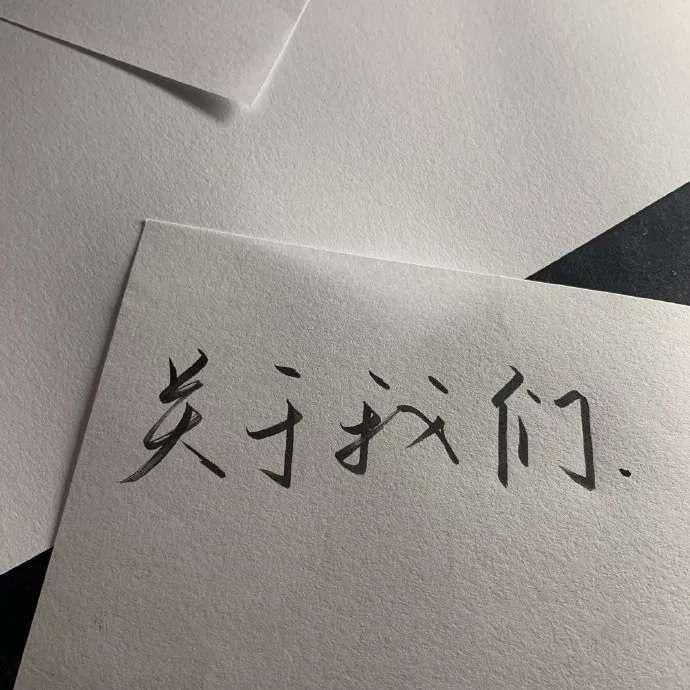 关于我们.